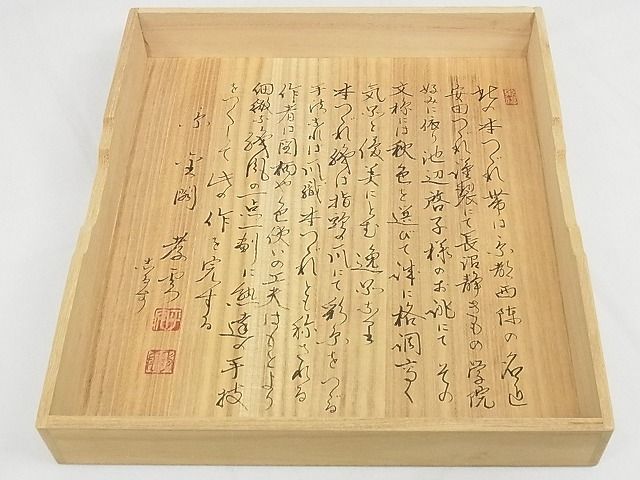 此の本つづれ帯は京都西陣の名匠
安田つづれ謹製にて長沼静きもの学院
好みに依り池辺啓子様のお誂にて その
文様には秋色を選びて誠に格調高く
気品と優美にとむ逸品なり
本つづれ織は指頭の爪にて彩糸をつづる
手法なれば爪織本つづれとも称される
作者は図柄や色使いの工夫はもとより
細緻な綾風の一点一劃に熟達の手技
をつくして此の作を完する
京 金閣